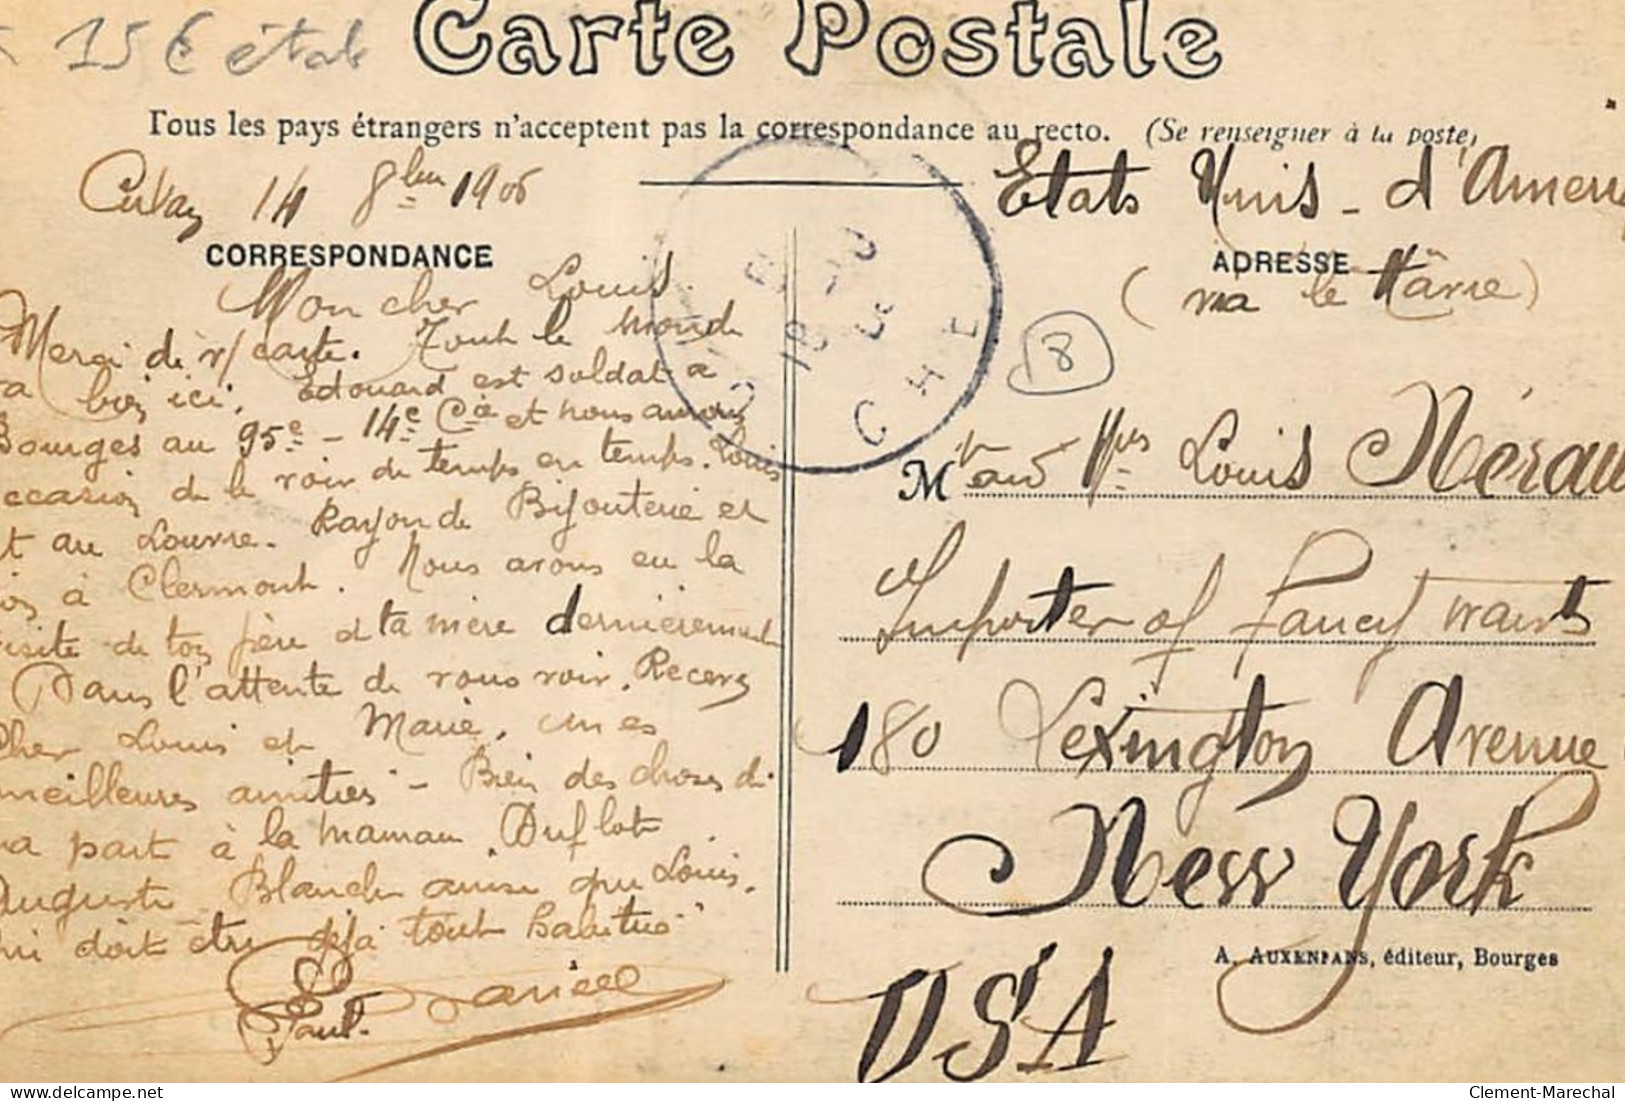 15 € étole
Carte Postale
Tous les pays étrangers n'acceptent pas la correspondance au recto. (Se renseigner à la poste)
14 8bre 1906
CORRESPONDANCE
Mon cher Louis.
Merci de v/ carte. Tout le monde
va bien ici. Edouard est soldat a
Bourges au 95e - 14e Cie et nous avons
occasion de le voir de temps en temps. Louis
est au Louvre. Rayon de Bijouterie et
à Clermont. Nous avons eu la
visite de ton père et ta mère dernièrement
Dans l'attente de vous voir. Recevez
Cher Louis et Marie, mes
meilleures amitiés - Bien des choses de
ma part à la maman Duflot
Auguste Blanche ainsi que Louis.
qui doit être déjà tout habitué
Paul.
CHE
Etats Unis - d'Ameri
ADRESSE
(via le Hâvre)
8
M Louis Nérau
Importer of Fancy
180 Lexington Avenue
New York
A. AUXENFANS, éditeur, Bourges
USA
delcampe.net
Clement-Marechal